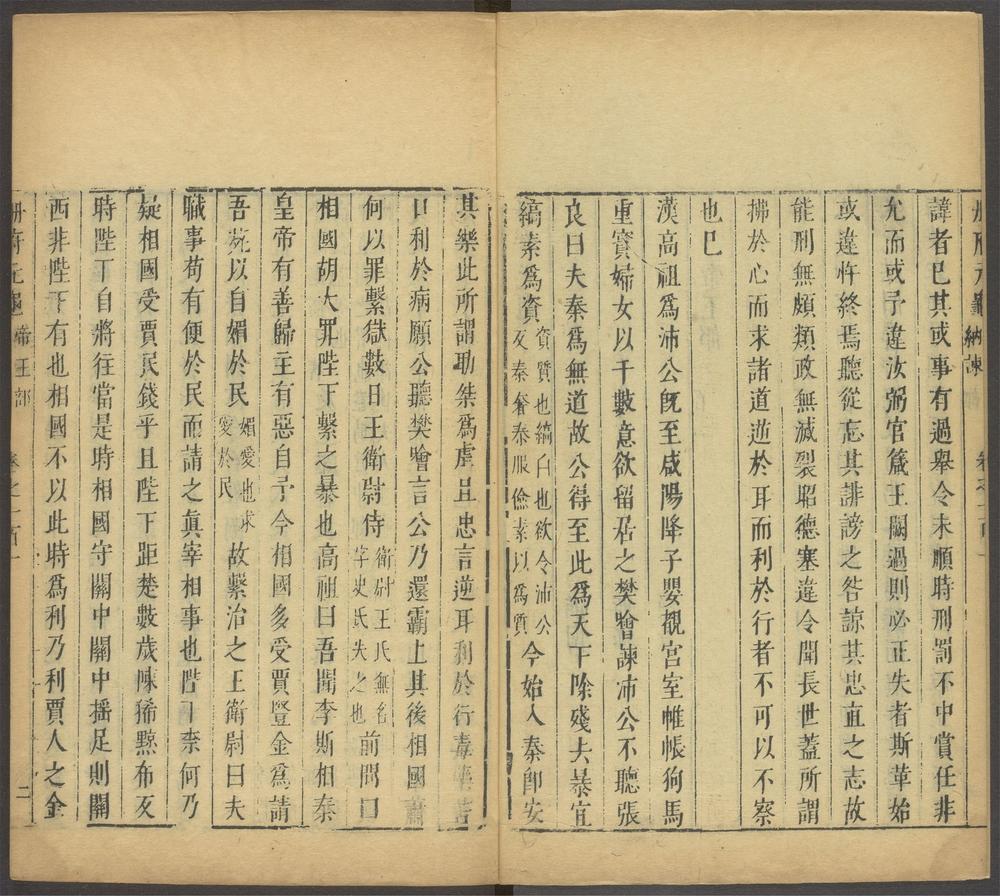 冊府元龜 納諫 卷之一百一
諱者已其或事有過舉令未順時刑罰不中賞任非
允而或予違汝弼官箴王闕過則必正失者斯革始
或違忤終焉聽從忘其誹謗之咎諒其忠直之志故
能刑無頗類政無減裂昭德塞違令聞長世蓋所謂
拂於心而求諸道逆於耳而利於行者不可以不察
也已
漢高祖爲沛公旣至咸陽降子嬰觀宮室帷帳狗馬
重寶婦女以千數意欲留居之樊噲諫沛公不聽張
良曰夫秦爲無道故公得至此爲天下除殘去暴宜
縞素爲資資質也縞白也欲令沛公反秦奢泰服儉素以爲質今始入秦卽安
其樂此所謂助桀爲虐且忠言逆耳利於行毒藥苦
口利於病願公聽樊噲言公乃還霸上其後相國蕭
何以罪繫獄數日王衛尉侍衛尉王氏無名字史氏失之也前問曰
相國胡大罪陛下繫之暴也高祖曰吾聞李斯相秦
皇帝有善歸主有惡自予今相國多受賈豎金爲請
吾苑以自媚於民媚愛也求愛於民故繫治之王衛尉曰夫
職事苟有便於民而請之眞宰相事也陛下柰何乃
疑相國受賈民錢乎且陛下距楚數歲陳豨黥布反
時陛下自將往當是時相國守關中關中搖足則關
西非陛下有也相國不以此時爲利乃利賈人之金
冊府元龜 帝王部 卷之一百一 二